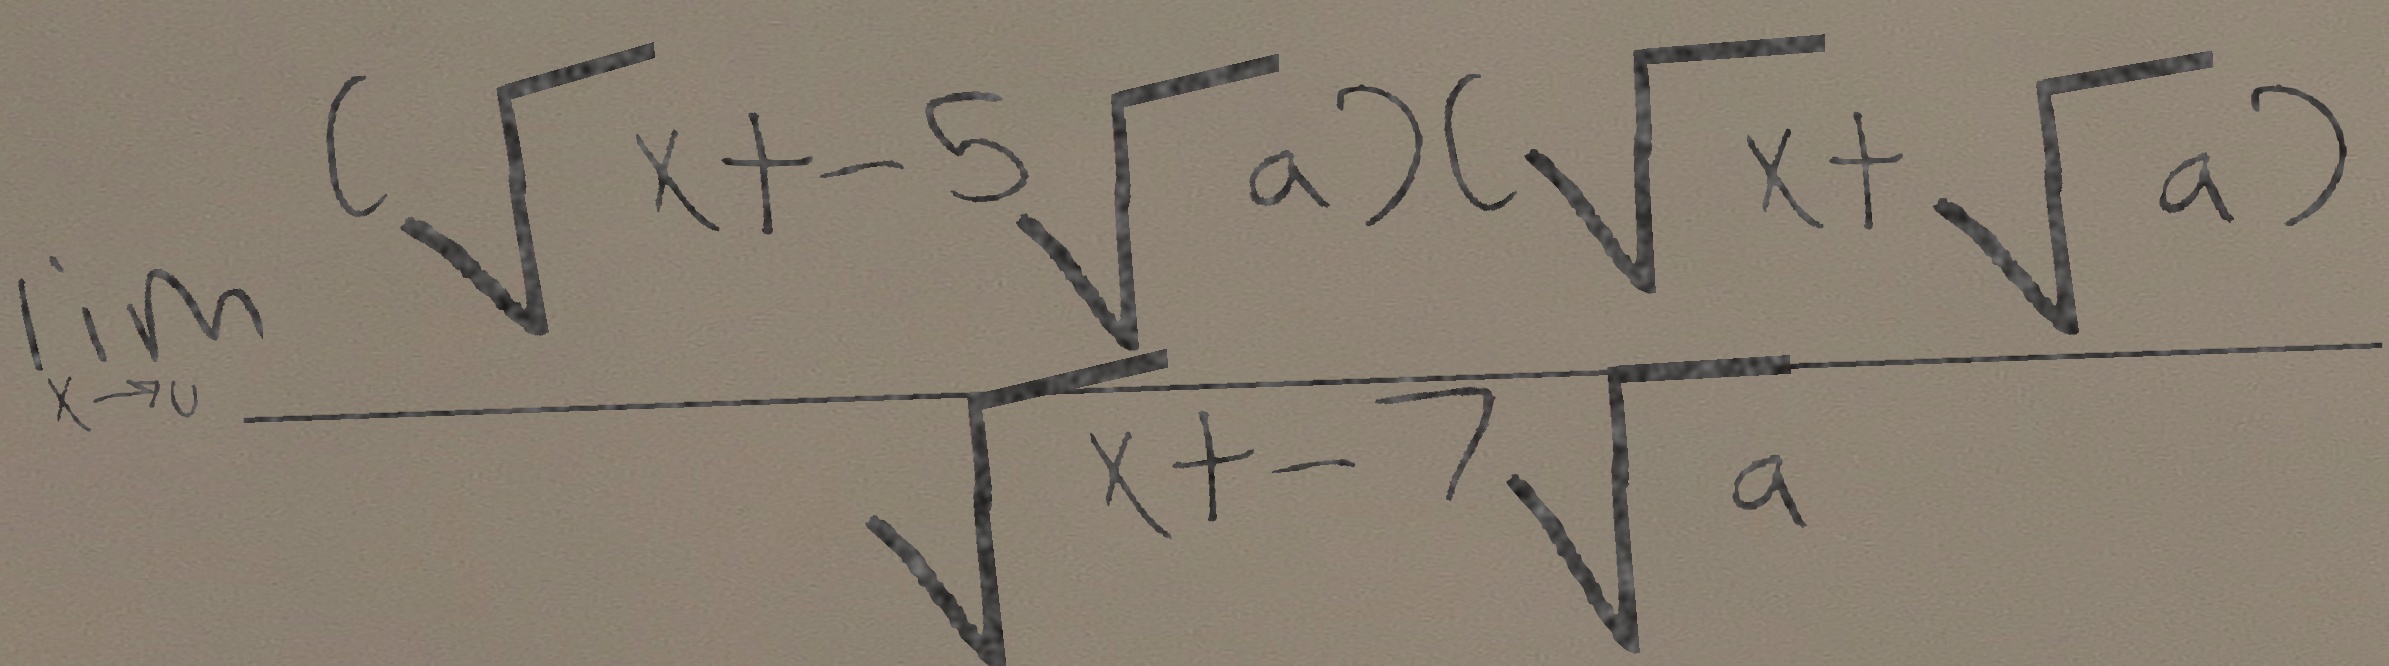 \lim_{x \to u} \frac{(\sqrt{x} + -5\sqrt{a})(\sqrt{x} + \sqrt{a})}{\sqrt{x} + -7\sqrt{a}}